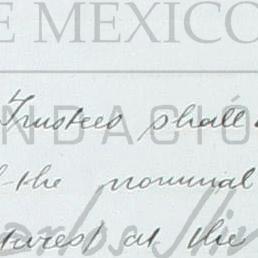 E MEXICO
Trustees shall
NDACIÓ
the nominal
arlos Slim
at the